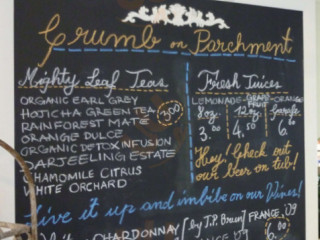 Crumb on Parchment
Mighty Leaf Teas
ORGANIC EARL GREY
HOJICHA GREEN TEA
RAINFOREST MATE
ORANGE DULCE
ORGANIC DETOX INFUSION
DARJEELING ESTATE
CHAMOMILE CITRUS
WHITE ORCHARD
3.00
Fresh Juices
LEMONADE ORANGE
8oz 12oz Carafe
3.00 4.50 6.
Hey! Check out
our Beer on tub!
Live it up and imbibe on our Wines!
CHARDONNAY [by J.P. Brun] FRANCE '09
FRANCE '09